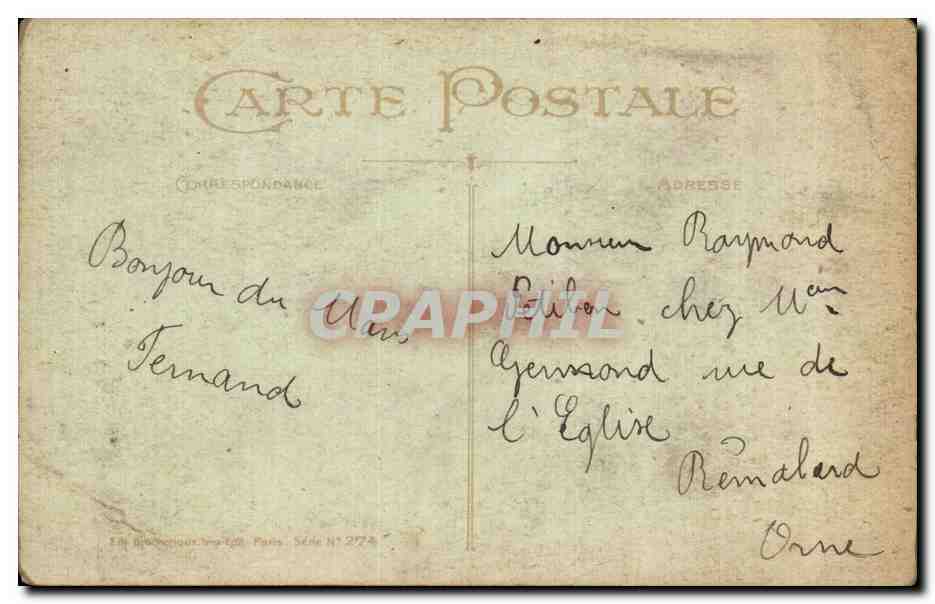 CARTE POSTALE
CORRESPONDANCE
ADRESSE
Bonjour du Mans
Fernand
Monsieur Raymond
Petibon chez M
rue de
l'Eglise
Rémalard
Orne
Paris. Série N° 274
CPAPHIL